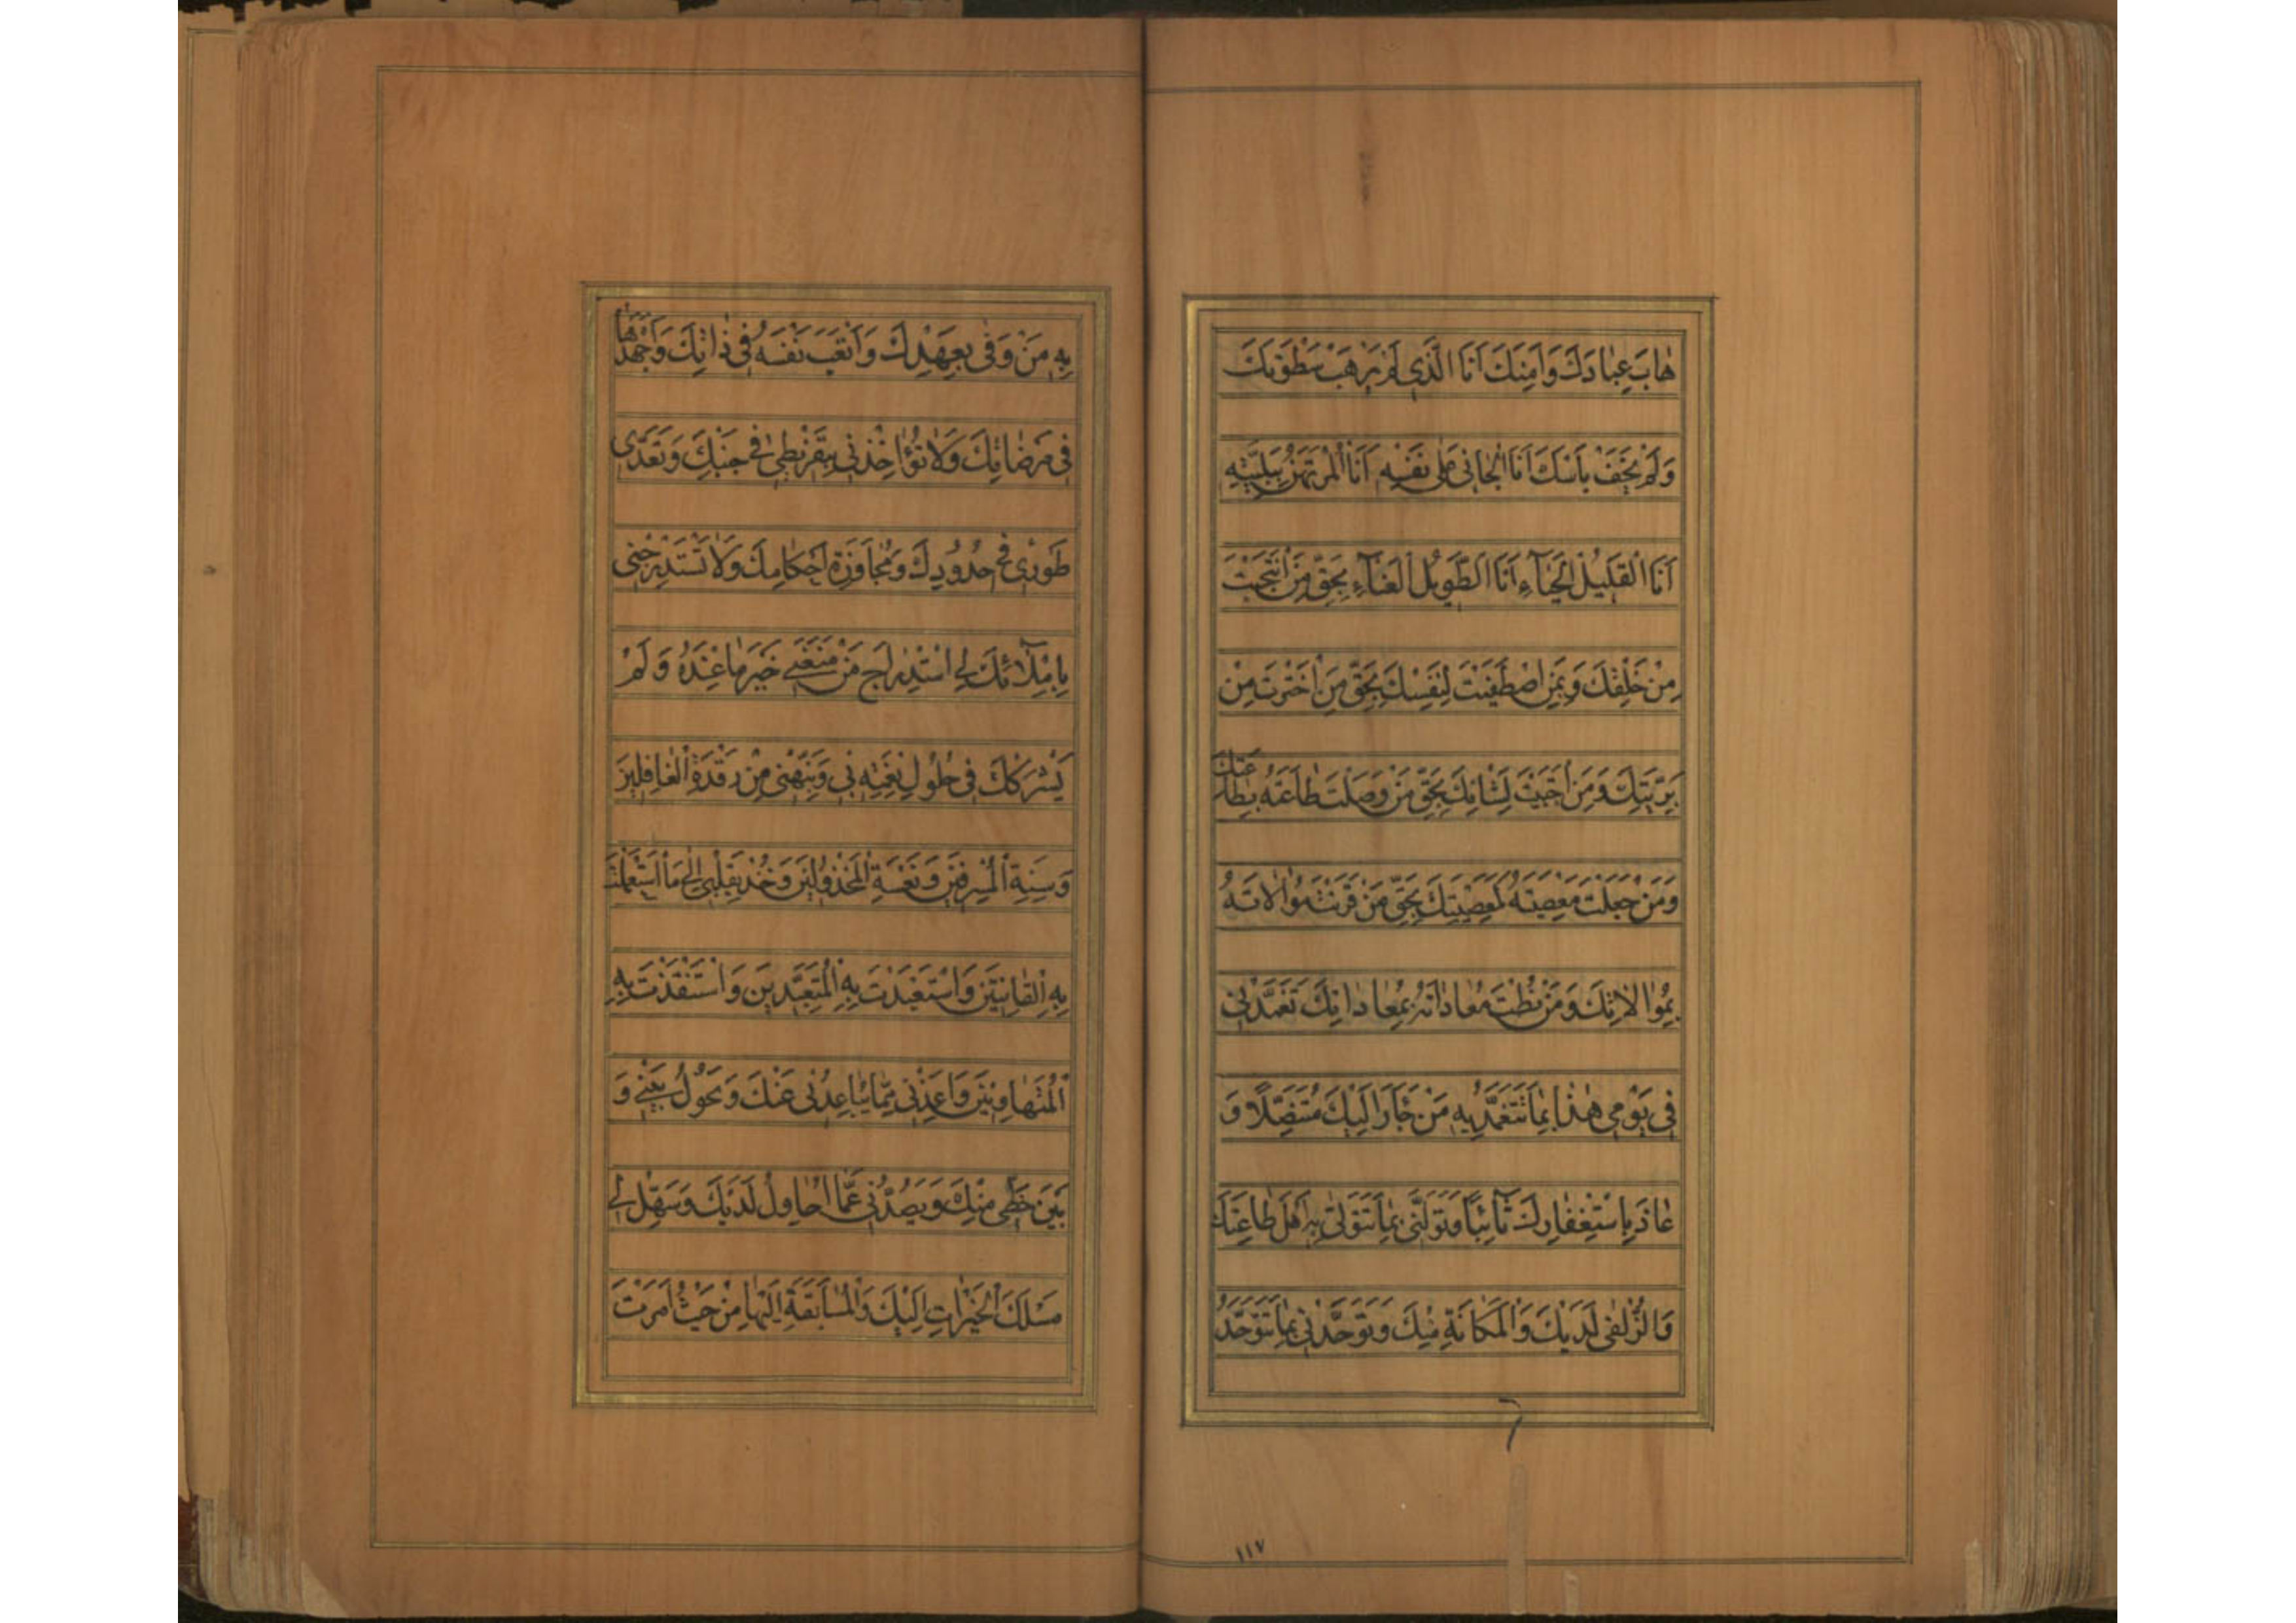 هٰابَ عِبٰادَكَ وَاَمِنَكَ اَنَا الَّذِي لَمْ يَرْهَبْ سَطْوَتَكَ
وَلَمْ يَخَفْ بَأْسَكَ اَنَا الْجٰانِي عَلٰى نَفْسِهِ اَنَا الْمُرْتَهَنُ بِبَلِيَّتِهِ
اَنَا الْقَلِيلُ الْحَيٰآءِ اَنَا الطَّوِيلُ الْعَنٰآءِ بِحَقِّ مَنِ انْتَجَبْتَ
مِنْ خَلْقِكَ وَبِمَنِ اصْطَفَيْتَ لِنَفْسِكَ بِحَقِّ مَنِ اخْتَرْتَ مِنْ
بَرِيَّتِكَ وَمَنِ اجْتَبَيْتَ لِشَانِكَ بِحَقِّ مَنْ وَصَلْتَ طٰاعَتَهُ بِطٰاعَتِكَ
وَمَنْ جَعَلْتَ مَعْصِيَتَهُ كَمَعْصِيَتِكَ بِحَقِّ مَنْ قَرَنْتَ مُوٰالاتَهُ
بِمُوٰالاتِكَ وَمَنْ نُطْتَ مُعٰادٰاتَهُ بِمُعٰادٰاتِكَ تَغَمَّدْنِي
فِي يَوْمِي هٰذٰا بِمٰا تَتَغَمَّدُ بِهِ مَنْ جَأَرَ اِلَيْكَ مُتَنَصِّلًا وَ
عٰاذَ بِاسْتِغْفٰارِكَ تٰآئِبًا وَتَوَلَّنِي بِمٰا تَتَوَلّٰى بِهِ اَهْلَ طٰاعَتِكَ
وَالزُّلْفٰى لَدَيْكَ وَالْمَكٰانَةِ مِنْكَ وَتَوَحَّدْنِي بِمٰا تَتَوَحَّدُ
١١٧
بِهِ مَنْ وَفٰى بِعَهْدِكَ وَاَتْعَبَ نَفْسَهُ فِي ذٰاتِكَ وَاَجْهَدَهٰا
فِي مَرْضٰاتِكَ وَلاٰ تُؤٰاخِذْنِي بِتَفْرِيطِي فِي جَنْبِكَ وَتَعَدِّي
طَوْرِي فِي حُدُودِكَ وَمُجٰاوَزَةِ اَحْكٰامِكَ وَلاٰ تَسْتَدْرِجْنِي
بِاِمْلآئِكَ لِي اسْتِدْرٰاجَ مَنْ مَنَعَنِي خَيْرَ مٰا عِنْدَهُ وَلَمْ
يَشْرَكْكَ فِي حُلُولِ نِعْمَتِهِ بِي وَنَبِّهْنِي مِنْ رَقْدَةِ الْغٰافِلِينَ
وَسِنَةِ الْمُسْرِفِينَ وَنَعْسَةِ الْمَخْذُولِينَ وَخُذْ بِقَلْبِي اِلٰى مَا اسْتَعْمَلْتَ
بِهِ الْقٰانِتِينَ وَاسْتَعْبَدْتَ بِهِ الْمُتَعَبِّدِينَ وَاسْتَنْقَذْتَ بِهِ
الْمُتَهٰاوِنِينَ وَاَعِذْنِي مِمّٰا يُبٰاعِدُنِي عَنْكَ وَيَحُولُ بَيْنِي وَ
بَيْنَ حَظِّي مِنْكَ وَيَصُدُّنِي عَمّٰا اُحٰاوِلُ لَدَيْكَ وَسَهِّلْ لِي
مَسْلَكَ الْخَيْرٰاتِ اِلَيْكَ وَالْمُسٰابَقَةَ اِلَيْهٰا مِنْ حَيْثُ اَمَرْتَ